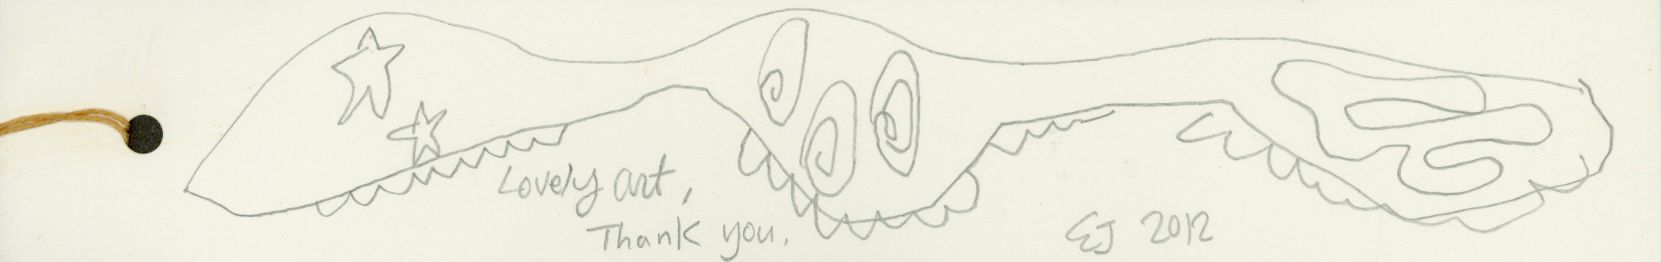 Lovely art,
Thank you.
EJ 2012